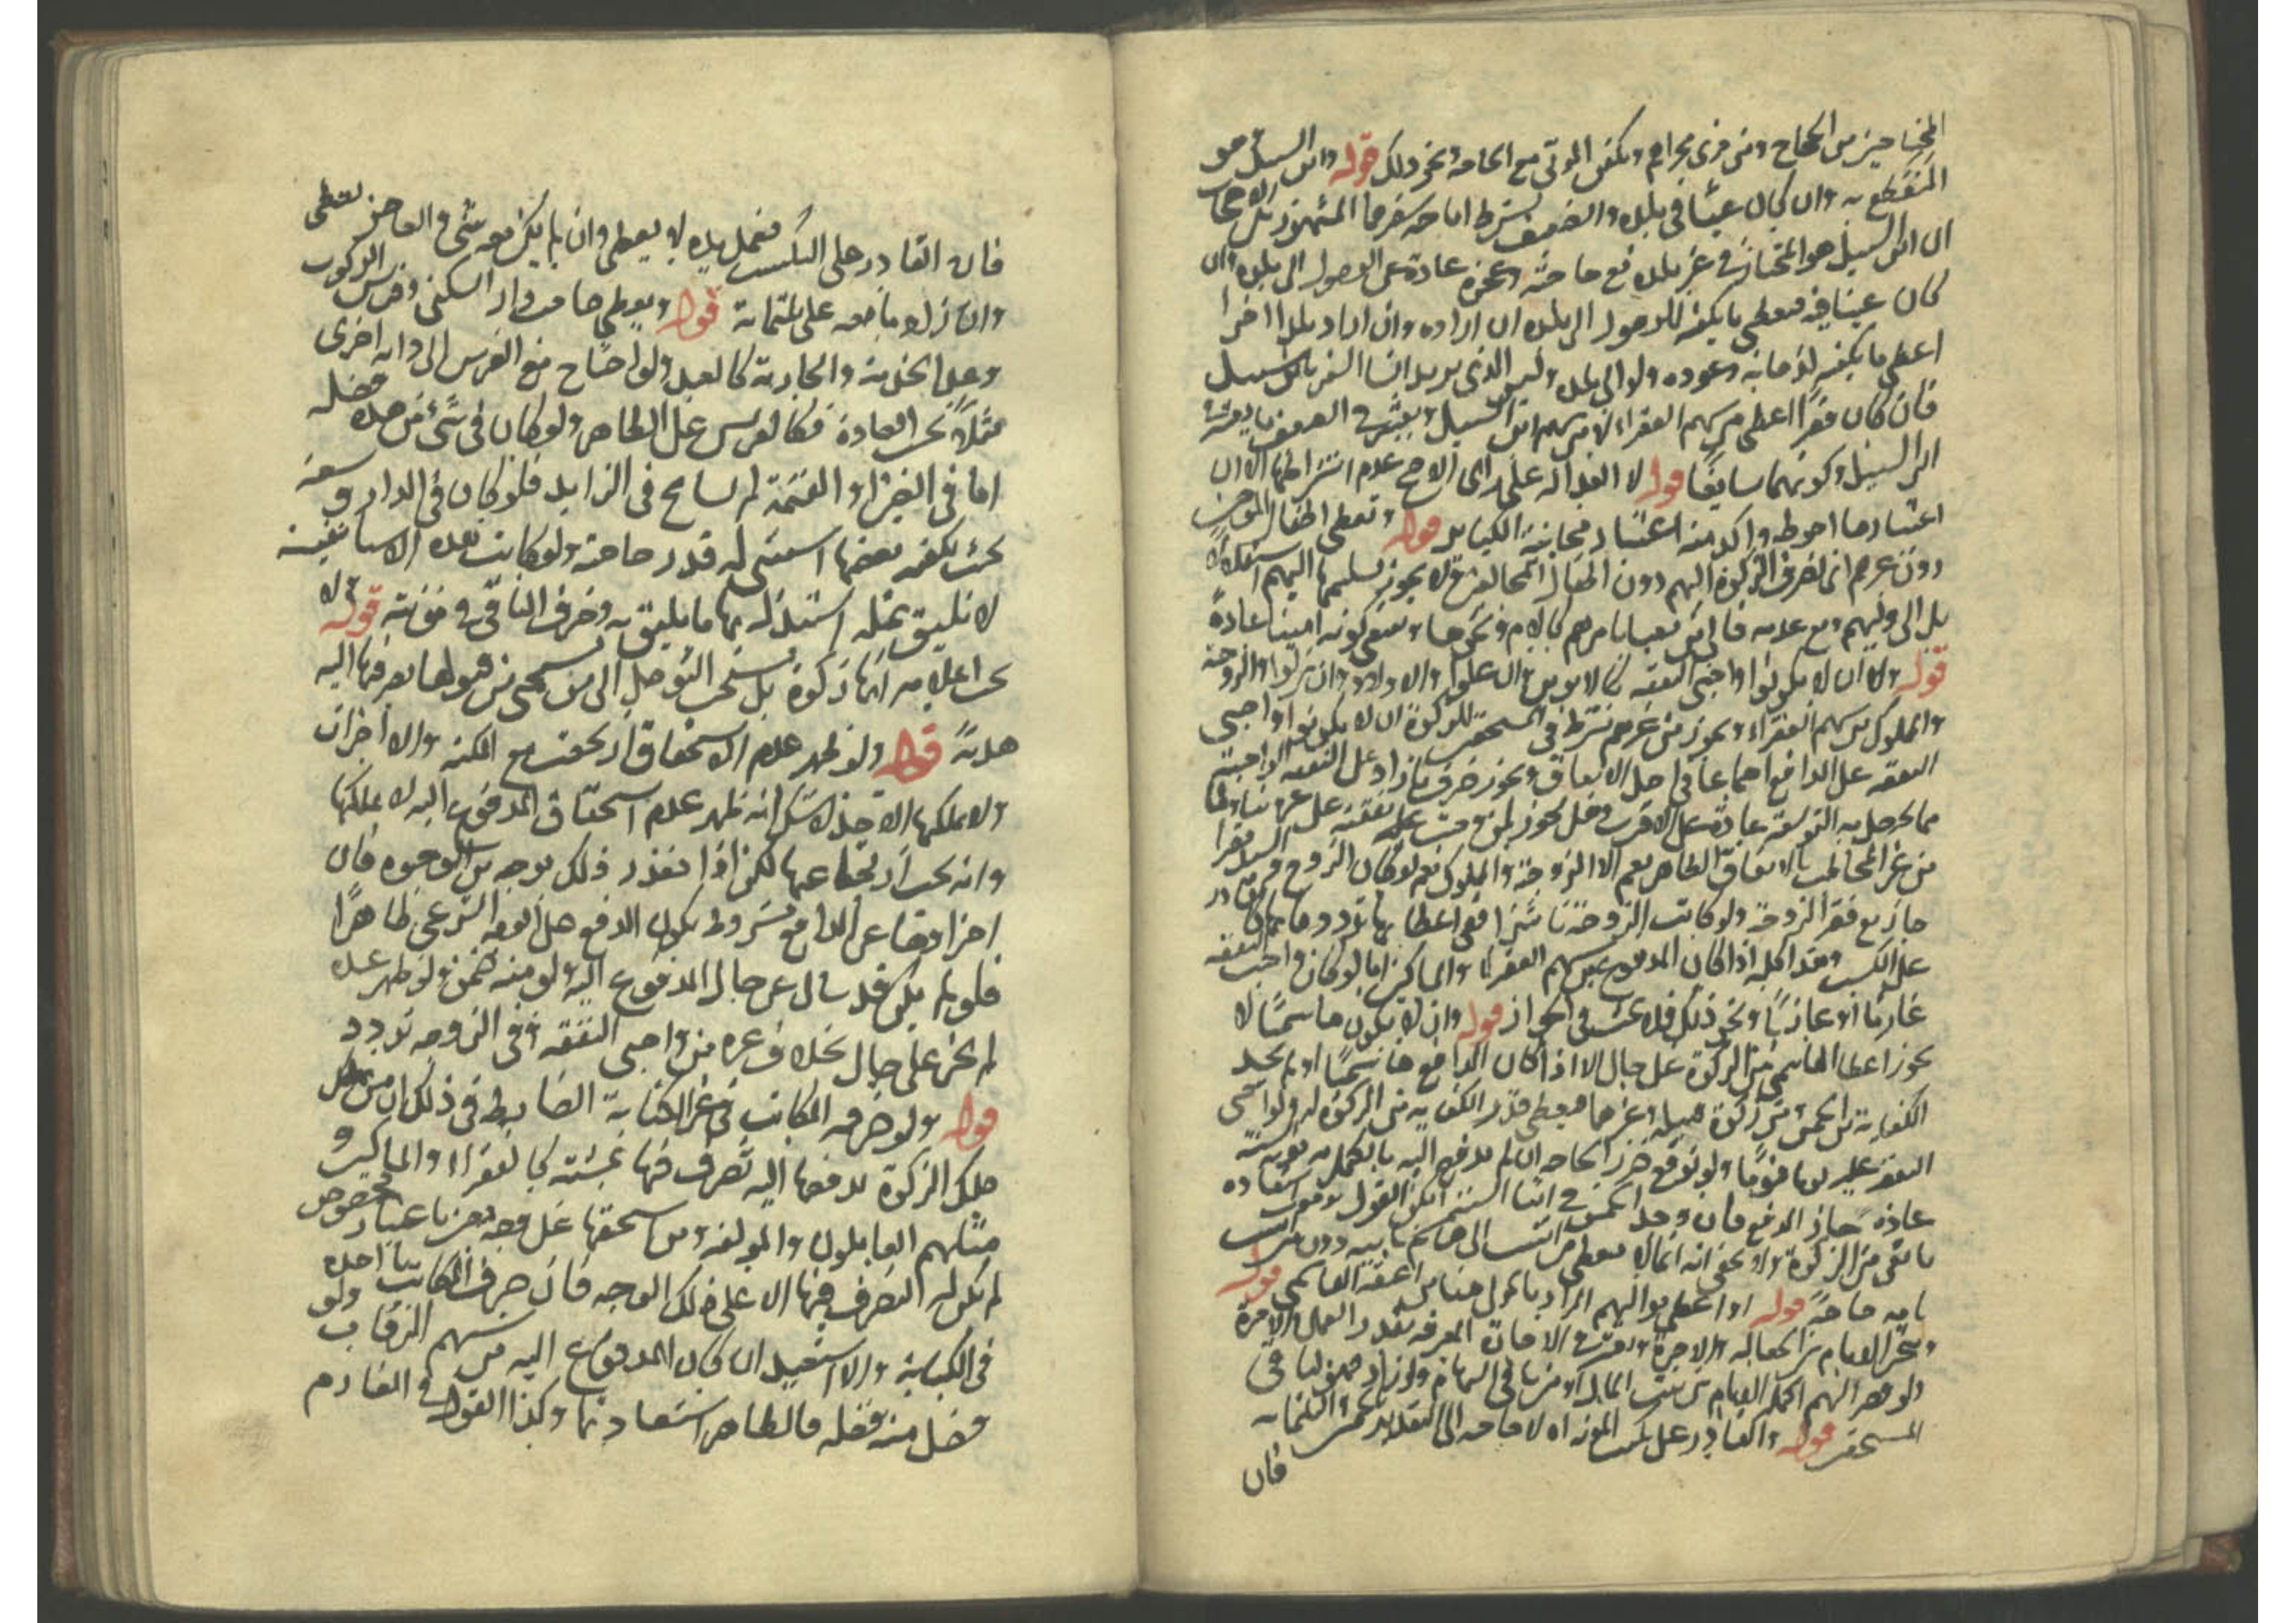 المحتاجين من الحجاج ومن قرى مجراهم وتكفين الموتى مع الحاجة ونحو ذلك قوله وابن السبيل هو
المنقطع به وان كان غنيا في بلده والضيف بشرط اباحة سفرهما المشهور بين الاصحاب
ان ابن السبيل هو المجتاز في غير بلده مع حاجته وعجزه عادة عن الوصول الى بلده وان
كان غنيا فيه فيعطى ما يكفيه للوصول الى بلده ان اراده وان اراد بلدا اخرا
اعطي ما يكفيه لذهابه وعوده ولو الى بلده وليس الذي يريد انشا السفر بابن سبيل
فان كان فقيرا اعطي من سهم الفقراء لا من سهم ابن السبيل ويعتبر في الضيف ما يعتبر في
ابن السبيل وكونهما سايغا قوله لا العدالة على راى الاصح عدم اشتراطها الا ان
اعتبارها احوط واكد منه اعتبار مجانبة الكباير قوله ويعطى اطفال المومنين
دون غيرهم اى تصرف الزكوة اليهم دون اطفال المخالفين ولا يجوز تسليمها اليهم استقلالا
بل الى وليهم ومع عدمه فالى من يعبا بامرهم كالام ونحوها وينبغي كونه امينا عادة
قوله والا ان لا يكونوا واجبي النفقة كالابوين وان علوا والاولاد وان نزلوا والزوجة
والمملوك من سهم الفقراء ويجوز من غيرهم يشترط في المستحقين للزكوة ان لا يكونوا واجبي
النفقة على الدافع اجماعا في اجل الانفاق ويجوز صرف ما زاد على النفقة الواجبة
مما يحصل به التوسعة عادة على الاقرب وهل يجوز لمن وجبت عليه نفقته على غيره تناولها
من غير المخاطب بالانفاق الظاهر نعم الا الزوجة والمملوك نعم لو كان الزوج فقيرا
جاز مع فقر الزوجة ولو كانت الزوجة ناشزا ففي اعطائها تردد وهل القادر
على الكسب وهذا كله اذا كان المدفوع من سهم الفقراء والمساكين اما لو كان واجب النفقة
غارما او غازيا ونحو ذلك فلا شك في الجواز قوله وان لا يكون هاشميا لا
يجوز اعطا الهاشمي من الزكوة على حال الا اذا كان الدافع هاشميا او لم يجد
الكفاية من الخمس ومن زكوة قبيله وغيرهما فيعطى قدر الكفاية من الزكوة له ولواجبي
النفقة عليه يوما فيوما ولو توقع ضرر الحاجة ان لم يدفع اليه ما يكمل به مونة السنة
عادة جاز الدفع فان وجد الخمس في اثنا السنة امكن القول بوجوب استعادة
ما بقي من الزكوة ولا يخفى انه انما لا يعطى من انتسب الى هاشم بابيه دون من انتسب
بامه خاصة قوله او اعطي مواليهم المراد بالمولى هنا من اعتقه الهاشمي قوله
ويتخير الامام بين الجعالة والاجرة ويعتبر في الاجارة المعرفة بقدر العمل والاجرة
ولو قصر النصيب اكمله الامام من بيت المال او من باقي السهام ولو زاد فهو لباقي
المستحقين قوله والقادر على تكسب المونة اه لا حاجة الى التقييد بالخمس والثلثماية
فان
فان القادر على التكسب فعمل بيده لا يعطى وان لم يكن معه شى والعاجز يعطى
وان زاد ما معه على ثلثماية قوله ويعطى صاحب دار السكنى وفرس الركوب
وعبد الخدمة والجارية كالعبد ولو احتاج مع الفرس الى دابه اخرى
مثلا بحسب العادة فكالفرس على الظاهر ولو كان في شىء من هذه فضله
اما في العين او القيمة لم يسامح في الزايد فلو كان في الدار سعة
بحيث يكفيه بعضها استثنى له قدر حاجته ولو كانت هذه الاشيا نفيسة
لا تليق بمثله استبدل بها ما يليق به وصرف الباقي في مؤنته قوله ولا
يجب اعلامه انها زكوة بل يستحب التوصل الى من يستحي من قبولها بصرفها اليه
هدية قوله ولو ظهر عدم الاستحقاق ارتجعت مع المكنة والا اجزات
ولا يملكها الاخذ لا شك انه ظهر عدم استحقاق المدفوع اليه لا يملكها
وانه يجب ارتجاعها لكن اذا تعذر ذلك بوجه من الوجوه فان
اجزاوها عن الدافع مشروط بكون الدفع على الوجه الشرعي ظاهرا
فلو لم يكن قد سال عن حال المدفوع اليه ولو منه ضمن ولو ظهر عبده
لم يجز على حال بخلاف غيره من واجبي النفقة وفي الزوجة تردد
قوله ولو صرفه المكاتب في غير الكتابة الضابط في ذلك ان من
ملك الزكوة بدفعها اليه تصرف فيها بمشيته كالفقراء والمساكين و
مثلهم العاملون والمولفة ومن استحقها على وجه معين باعتبار خصوص
لم يكن له التصرف فيها الا على ذلك الوجه فان صرف المكاتب ما اخذه
في الكتابة والا استعيد ان كان المدفوع اليه من سهم الرقاب ولو
فضل منه فضلة فالظاهر استعادتها وكذا القول في الغارم